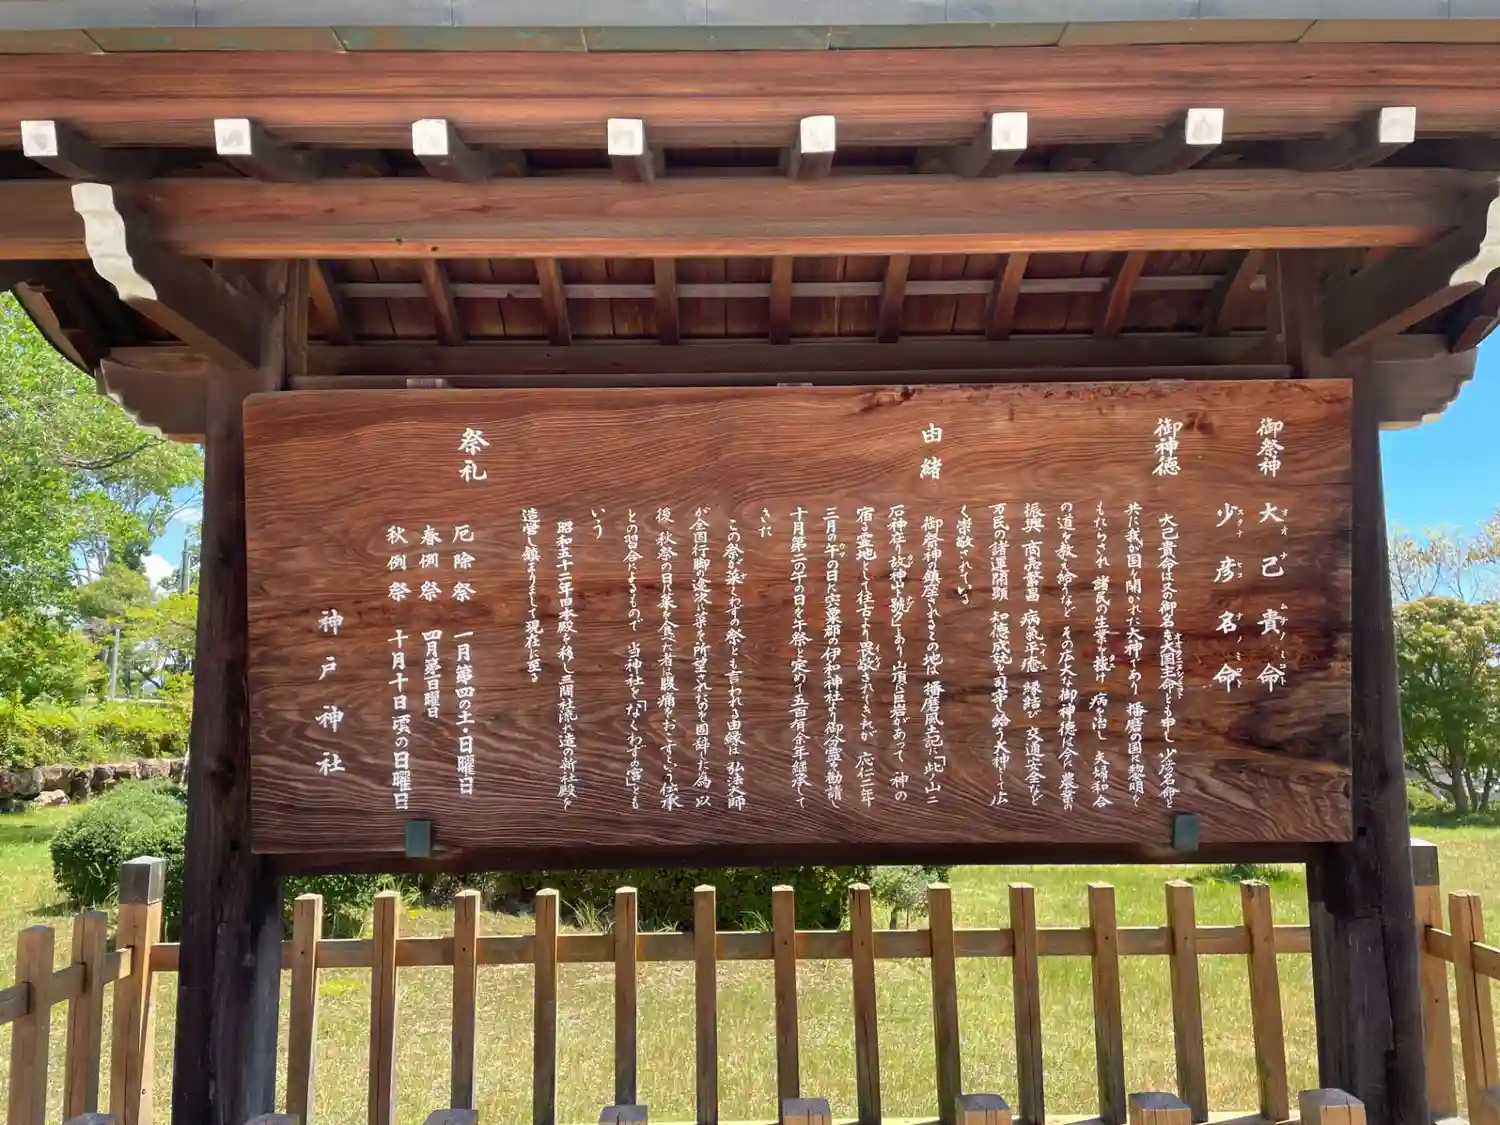 御祭神
大己貴命
オオナムチノミコト
少彦名命
スクナヒコナノミコト
御神徳
大己貴命は又の御名を大国主命とも申し 少彦名命と
共に我が国を開かれた大神であり 播磨の国に黎明を
もたらされ 諸民の生業を援け 病を治し 夫婦和合
の道を教え給うなど その広大な御神徳は今に 農業の
振興 商売繁昌 病氣平癒 縁結び 交通安全など
万民の諸運開顕 知徳成就を司宰し給う大神として広
く崇敬されている
由緒
御祭神の鎮座されるこの地は 播磨風土記に「此ノ山ニ
石神在り故神山ト號ク」とあり 山頂に巨岩があって 神の
宿る霊地として往古より畏敬されてきたが 応仁二年
三月の午の日に宍粟郡の伊和神社より御分霊を勧請し
十月第二の午の日を午祭と定めて五百有余年継承して
きた
この祭が菜くわずの祭とも言われる由縁は 弘法大師
が全国行脚の途次に菜を所望されたのを固辞した為 以
後 秋祭の日に菜を食べた者に腹痛をおこすという伝承
との習合によるもので 当神社を「なくわずの宮」とも
いう
昭和五十二年旧本殿を移し三間社流れ造の新社殿を
造営し鎮まりまして現在に至る
祭礼
厄除祭 一月第四の土・日曜日
春例祭 四月第一日曜日
秋例祭 十月十日頃の日曜日
神戸神社